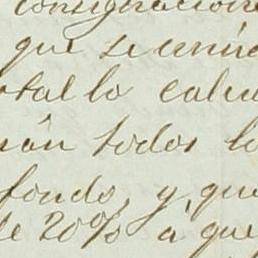 consignacione
que se
tal lo calcu
rán todos lo
fondo, y, que
de 20% á que